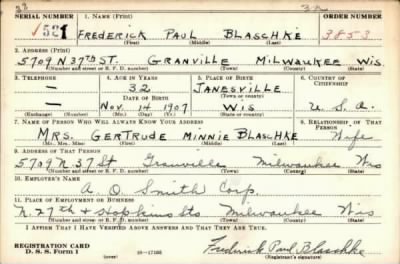 32
SERIAL NUMBER 1. NAME (Print) ORDER NUMBER
521 FREDERICK PAUL BLASCHKE 3853
(First) (Middle) (Last)
2. ADDRESS (Print)
5709 N 37TH ST. GRANVILLE MILWAUKEE WIS.
(Number and street or R. F. D. number) (Town) (County) (State)
3. TELEPHONE 4. AGE IN YEARS 5. PLACE OF BIRTH 6. COUNTRY OF CITIZENSHIP
— 32 JANESVILLE
DATE OF BIRTH (Town or county)
— NOV. 14 1907 WIS U. S. A.
(Exchange) (Number) (Mo.) (Day) (Yr.) (State or country)
7. NAME OF PERSON WHO WILL ALWAYS KNOW YOUR ADDRESS 8. RELATIONSHIP OF THAT PERSON
MRS. GERTRUDE MINNIE BLASCHKE Wife
(Mr., Mrs., Miss) (First) (Middle) (Last)
9. ADDRESS OF THAT PERSON
5709 N. 37 St Granville Milwaukee Wis
(Number and street or R. F. D. number) (Town) (County) (State)
10. EMPLOYER'S NAME
A. O. Smith Corp.
11. PLACE OF EMPLOYMENT OR BUSINESS
N. 27th & Hopkins Sts Milwaukee Wis
(Number and street or R. F. D. number) (Town) (County) (State)
I AFFIRM THAT I HAVE VERIFIED ABOVE ANSWERS AND THAT THEY ARE TRUE.
REGISTRATION CARD
D. S. S. Form 1 Frederick Paul Blaschke
(Registrant's signature)